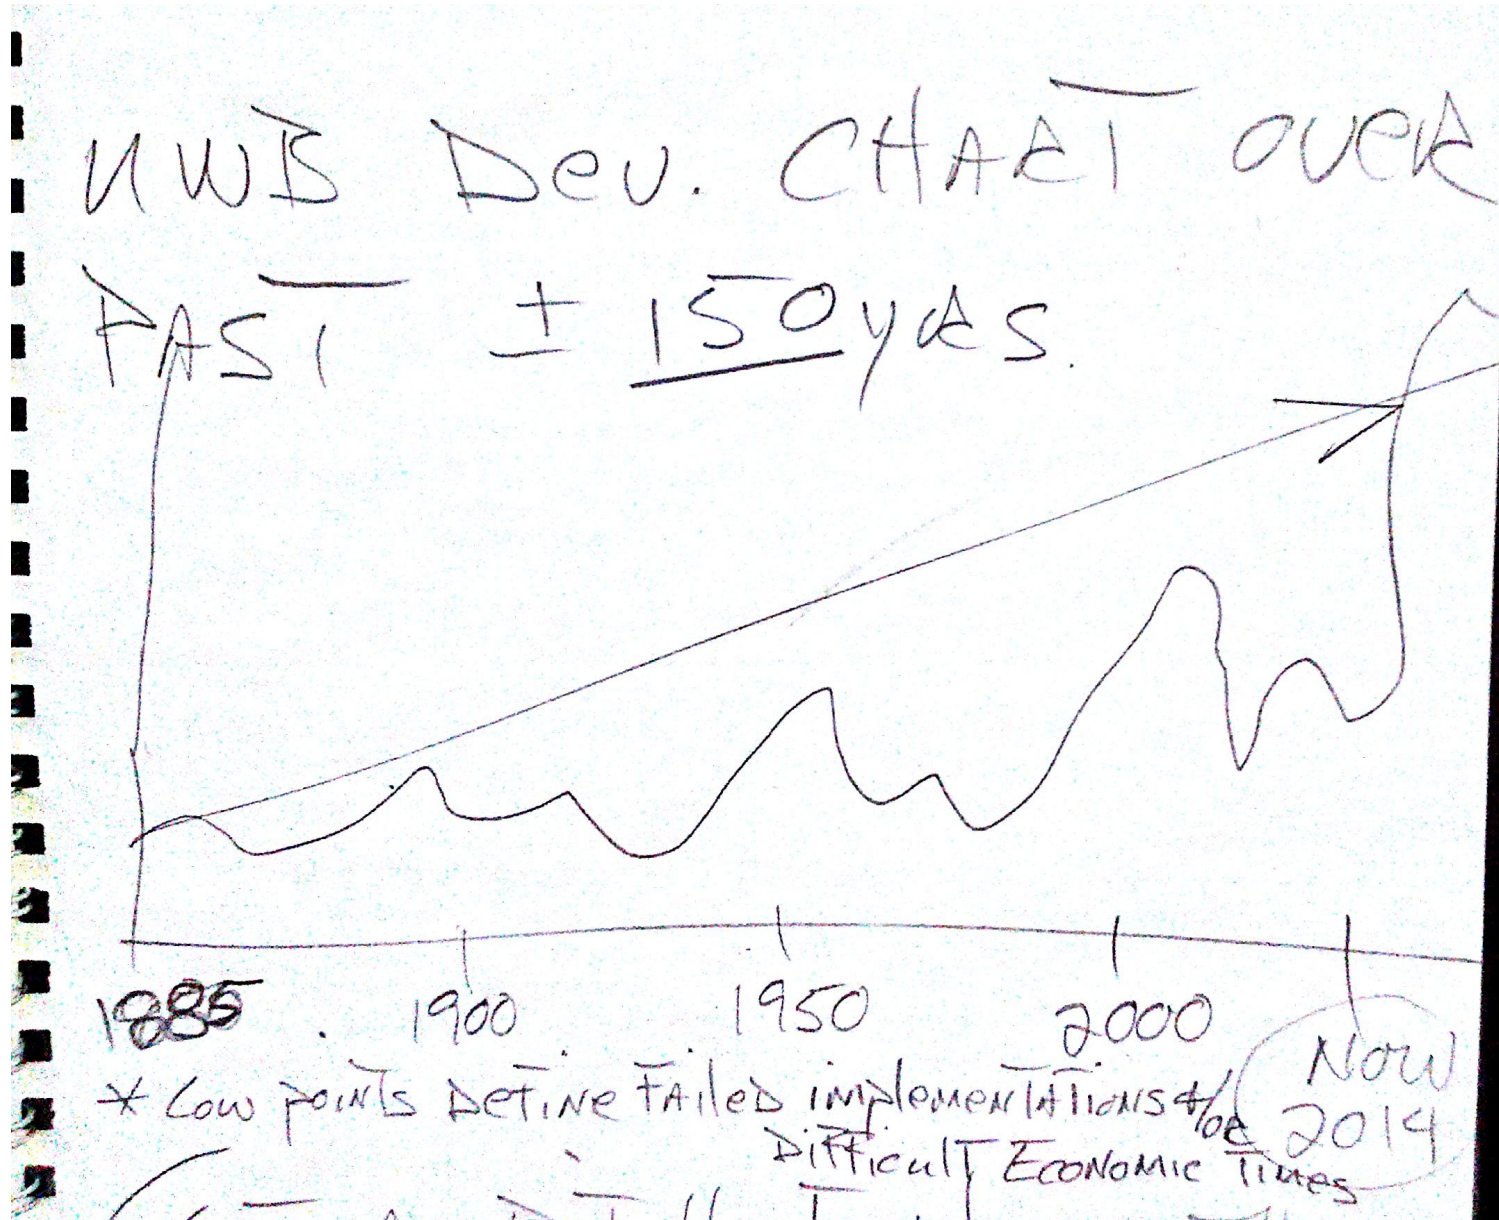 NWB Dev. CHART OVER
PAST ± 150 yRS.
1885 1900 1950 2000
NOW
2014
* Low points Define FAileD implementATIONS &/OR
Difficult Economic Times